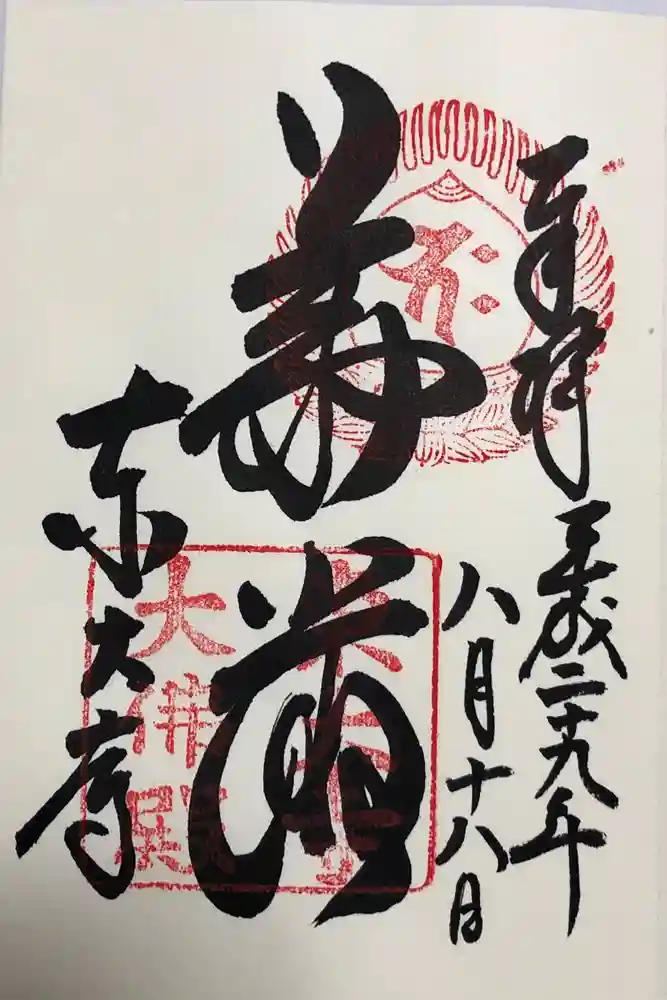 奉拝
平成二十九年
八月十八日
華厳
東大寺
大佛殿